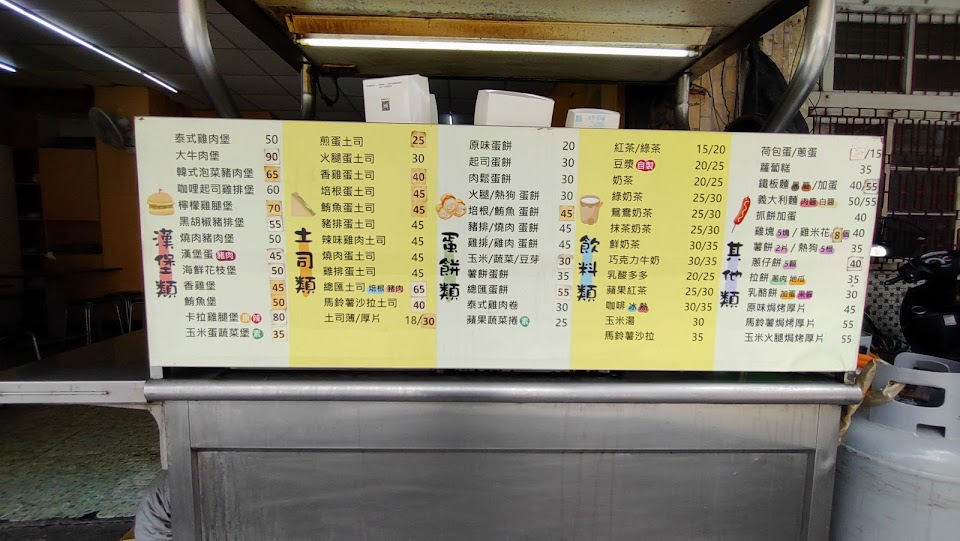 漢堡類
泰式雞肉堡 50
大牛肉堡 90
韓式泡菜豬肉堡 65
咖哩起司雞排堡 60
檸檬雞腿堡 70
黑胡椒豬排堡 55
燒肉豬肉堡 50
漢堡蛋 豬肉 45
海鮮花枝堡 50
香雞堡 45
鮪魚堡 50
卡拉雞腿堡 辣 80
玉米蛋蔬菜堡 素 35
土司類
煎蛋土司 25
火腿蛋土司 30
香雞蛋土司 40
培根蛋土司 45
鮪魚蛋土司 45
豬排蛋土司 45
辣味雞肉土司 45
燒肉蛋土司 45
雞排蛋土司 45
總匯土司 培根 豬肉 65
馬鈴薯沙拉土司 40
土司薄/厚片 18/30
蛋餅類
原味蛋餅 20
起司蛋餅 30
肉鬆蛋餅 30
火腿/熱狗 蛋餅 30
培根/鮪魚 蛋餅 45
豬排/燒肉 蛋餅 45
雞排/雞肉 蛋餅 45
玉米/蔬菜/豆芽 35
薯餅蛋餅 30
總匯蛋餅 55
泰式雞肉卷 30
蘋果蔬菜捲 素 25
飲料類
紅茶/綠茶 15/20
豆漿 自製 20/25
奶茶 20/25
綠奶茶 25/30
鴛鴦奶茶 25/30
抹茶奶茶 25/30
鮮奶茶 30/35
巧克力牛奶 30/35
乳酸多多 20/25
蘋果紅茶 25/30
咖啡 冰 熱 30/35
玉米湯 30
馬鈴薯沙拉 35
其他類
荷包蛋/蔥蛋 /15
蘿蔔糕 35
鐵板麵 /加蛋 40/55
義大利麵 肉醬 白醬 50/55
抓餅加蛋 40
雞塊 5塊 / 雞米花 8個 40
薯餅 2片 / 熱狗 5根 35
蔥仔餅 5顆 40
拉餅 蔥肉 地瓜 45
乳酪餅 加蛋 果醬 30
原味焗烤厚片 45
馬鈴薯焗烤厚片 55
玉米火腿焗烤厚片 55